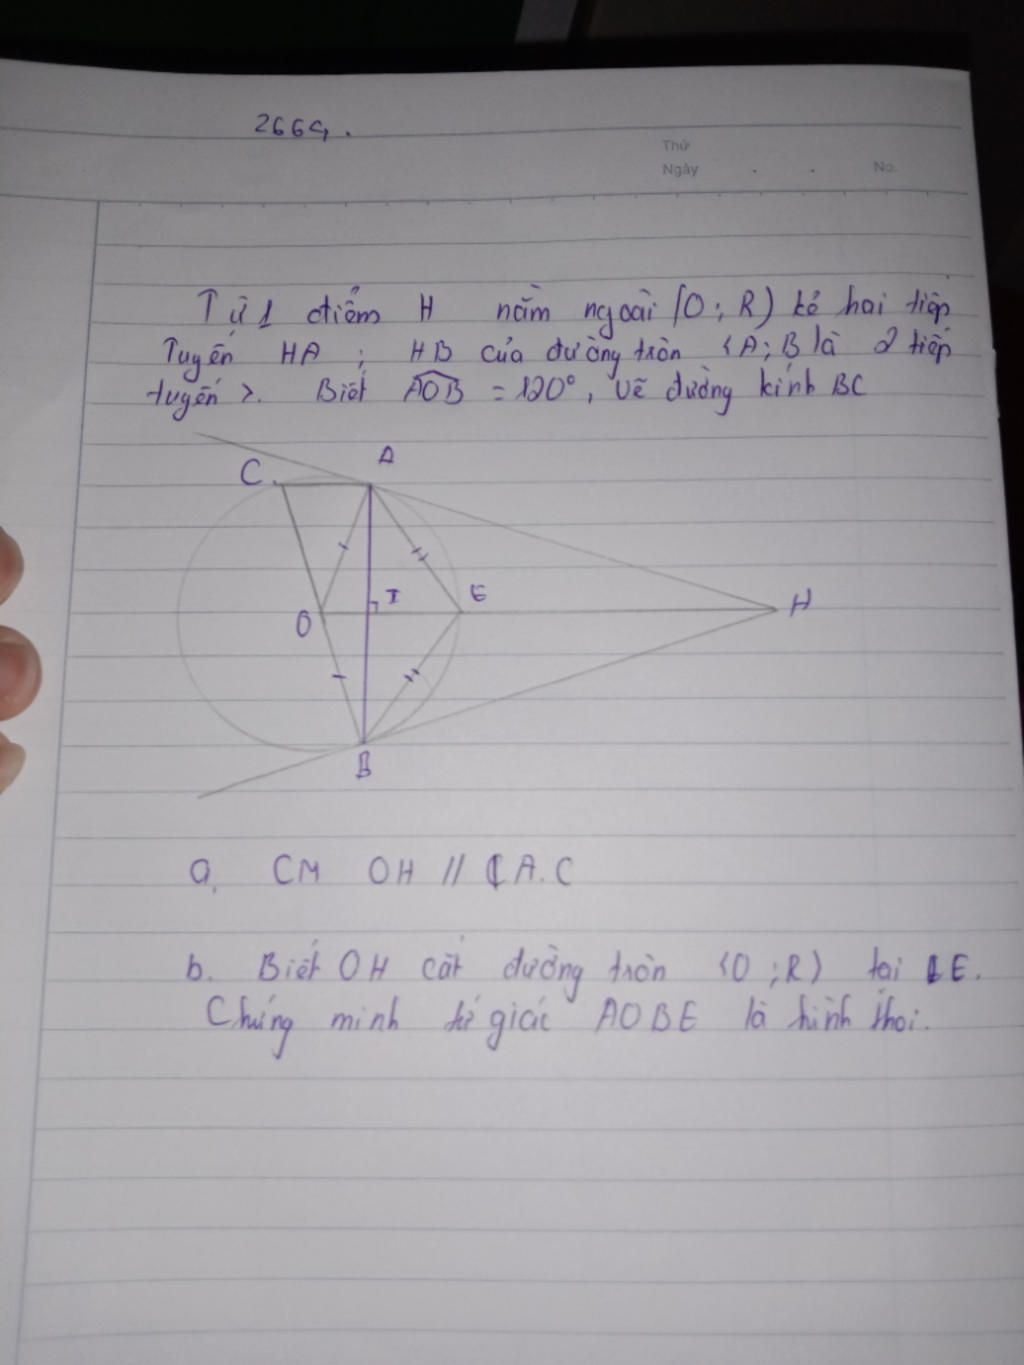 2664.
Thứ
Ngày . . No.
Từ 1 điểm H nằm ngoài (O; R) kẻ hai tiếp
Tuyến HA ; HB của đường tròn (A; B là 2 tiếp
tuyến). Biết AOB = 120°, vẽ đường kính BC
A
C
I
E
H
O
B
a, CM OH // A.C
b. Biết OH cắt đường tròn (O; R) tại E.
Chứng minh tứ giác AOBE là hình thoi.